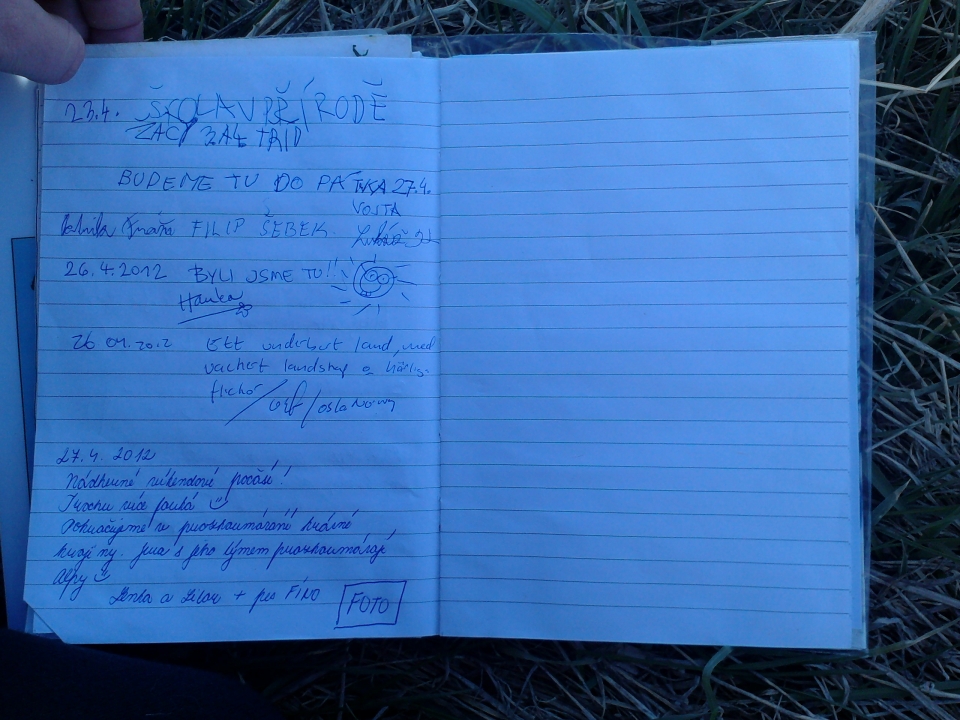 23.4. ŠKOLA V PŘÍRODĚ
ŽÁCI 3.A 4. TŘÍD
BUDEME TU DO PÁTKA 27.4.
VOJTA
FILIP ŠEBEK Lukáš
26.4.2012 BYLI JSME TU!!
Hanka
26 04.2012 Ett underbart land, med
vackert landskap o härlig
flickor / / Oslo Norway
27.4. 2012
Nádherné víkendové počasí!
Trochu více fouká
Pokračujeme v prozkoumávání krásné
krajiny. Jura s jeho týmem prozkoumávají
Alpy
Lenka a Libor + pes FÍNO FOTO